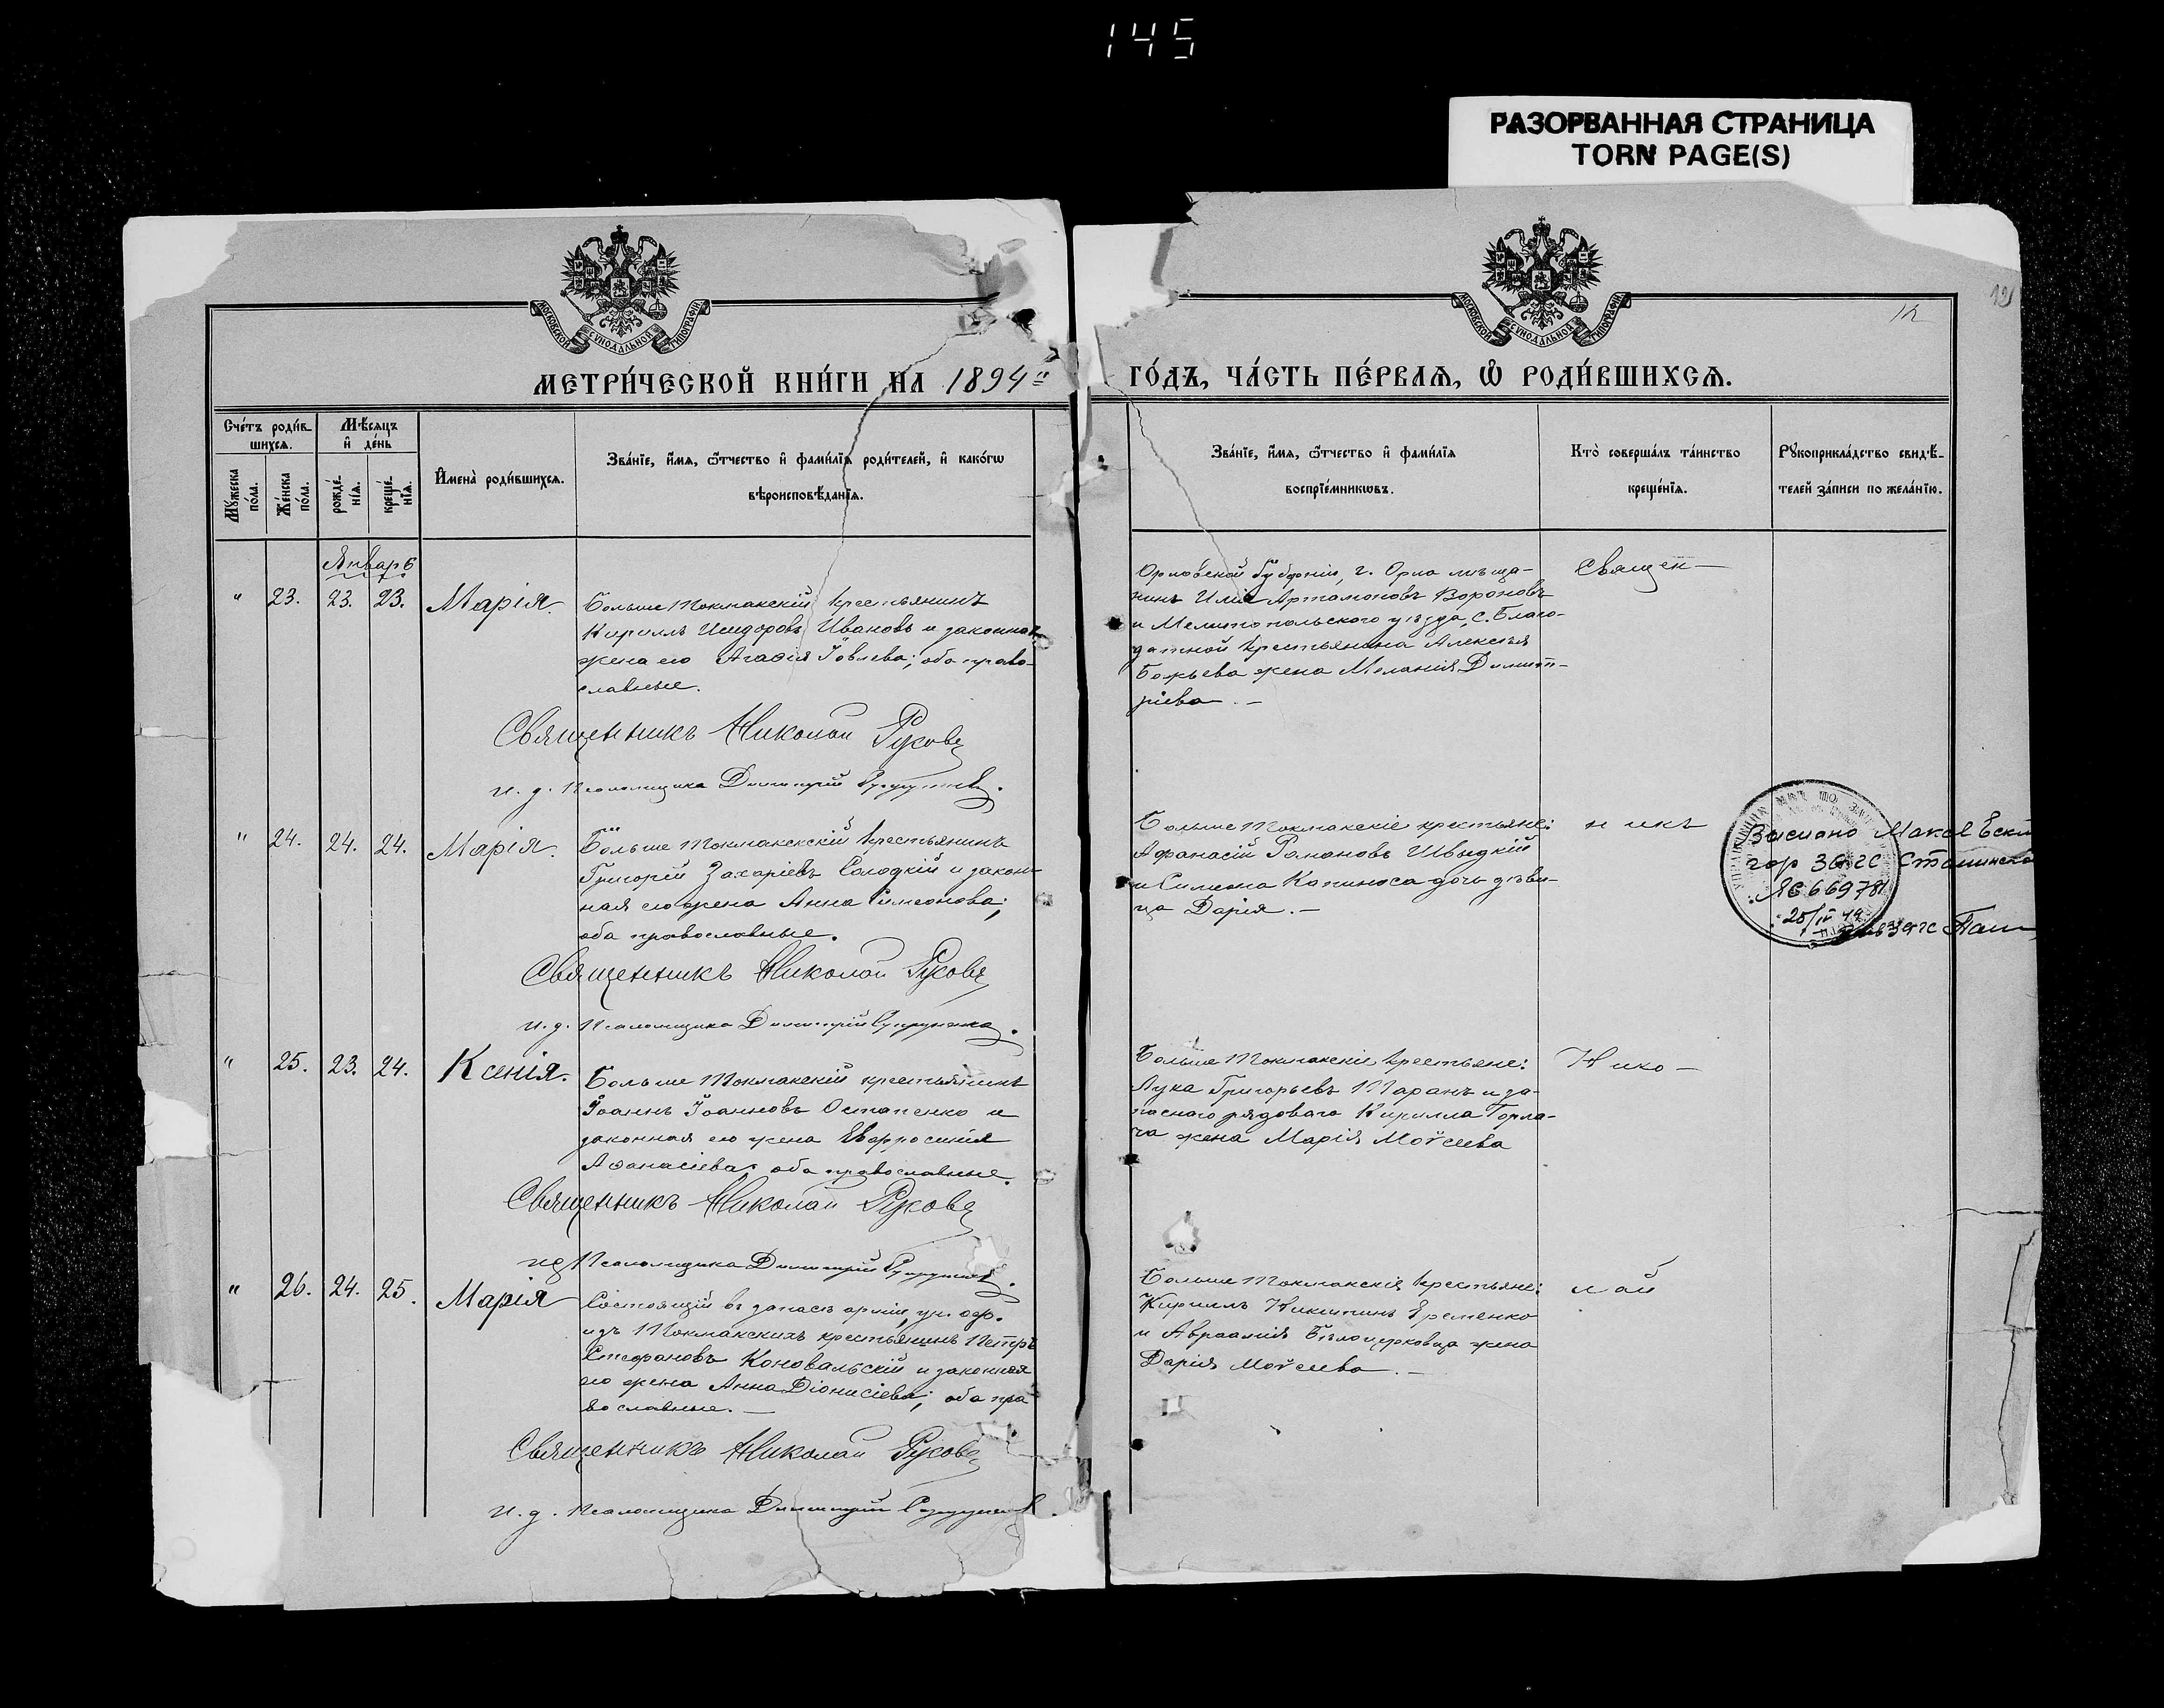 145
РАЗОРВАННАЯ СТРАНИЦА
TORN PAGE(S)
МОСКОВСКОЙ СѴНОДАЛЬНОЙ ТИПОГРАФІИ
МОСКОВСКОЙ СѴНОДАЛЬНОЙ ТИПОГРАФІИ
МЕТРИ́ЧЕСКОЙ КНИ́ГИ НА 1894й ГО́ДЪ, ЧА́СТЬ ПЕ́РВАѦ, Ѡ҆ РОДИ́ВШИХСѦ.
Сче́тъ роди́в
шихсѧ.
Мѣ́сяцъ
и҆ де́нь
Мꙋ́жеска
по́ла.
Же́нска
по́ла.
рожде́-
нїѧ.
креще́-
нїѧ.
И҆мена̀ роди́вшихсѧ.
Зва́нїе, и҆́мѧ, ѻ҆́тчество и҆ фами́лїѧ роди́телей, и҆ како́гѡ
вѣроисповѣ́данїѧ.
Зва́нїе, и҆́мѧ, ѻ҆́тчество и҆ фами́лїѧ
воспрїе́мникѡвъ.
Кто̀ соверша́лъ та́инство
креще́нїѧ.
Рꙋкоприкла́дство свидѣ́-
телей за́писи по жела́нїю.
Январь
" 23. 23. 23. Марія.
Больше Токмакскій крестьянинъ
Кириллъ Исидоровъ Ивановъ и законная
жена его Агаѳія Іовлева; оба право-
славные.
Священникъ Николай
и. д. Псаломщика Димитрій
Орловской Губерніи, г. Орла мѣща-
нинъ Илія Артамоновъ Вороновъ
и Мелитопольского уѣзда, с. Благо-
датной крестьянина Алексѣя
жена Меланія Димит-
ріева. —
Священ—
" 24. 24. 24. Марія.
Больше Токмакскій крестьянинъ
Григорій Захаріевъ Солодкій и закон-
ная его жена Анна Симеонова;
оба православные.
Священникъ Николай
и. д. Псаломщика Димитрій
Больше Токмакскіе крестьяне:
Афанасій Романовъ Швыдкій
и Симеона Копиноса дочь дѣви-
ца Дарія. —
никъ
гор ЗАГС
669781
25/IV 44
" 25. 23. 24. Ксенія.
Больше Токмакскій крестьянинъ
Іоаннъ Іоанновъ Остапенко и
законная его жена Евфросинія
Аѳанасіева; оба православные.
Священникъ Николай
ид Псаломщика Димитрій
Больше Токмакскіе крестьяне:
Лука Григорьевъ Таранъ и за-
паснаго рядовага Кирилла Горла-
ча жена Марія Моѵсеева
Нико—
" 26. 24. 25. Марія
Состоящій въ запасѣ арміи, ун. оф.
изъ Токмакскихъ крестьянинъ Петръ
Стефановъ Коновальскій и законная
его жена Анна Діонисіева; оба пра
вославные. —
Священникъ Николай
и. д. Псаломщика Димитрій
Больше Токмакскія крестьяне:
Кириллъ Никитинъ Еременко
и Авраамія Бѣлоцерковца жена
Дарія Моѵсеева. —
лай